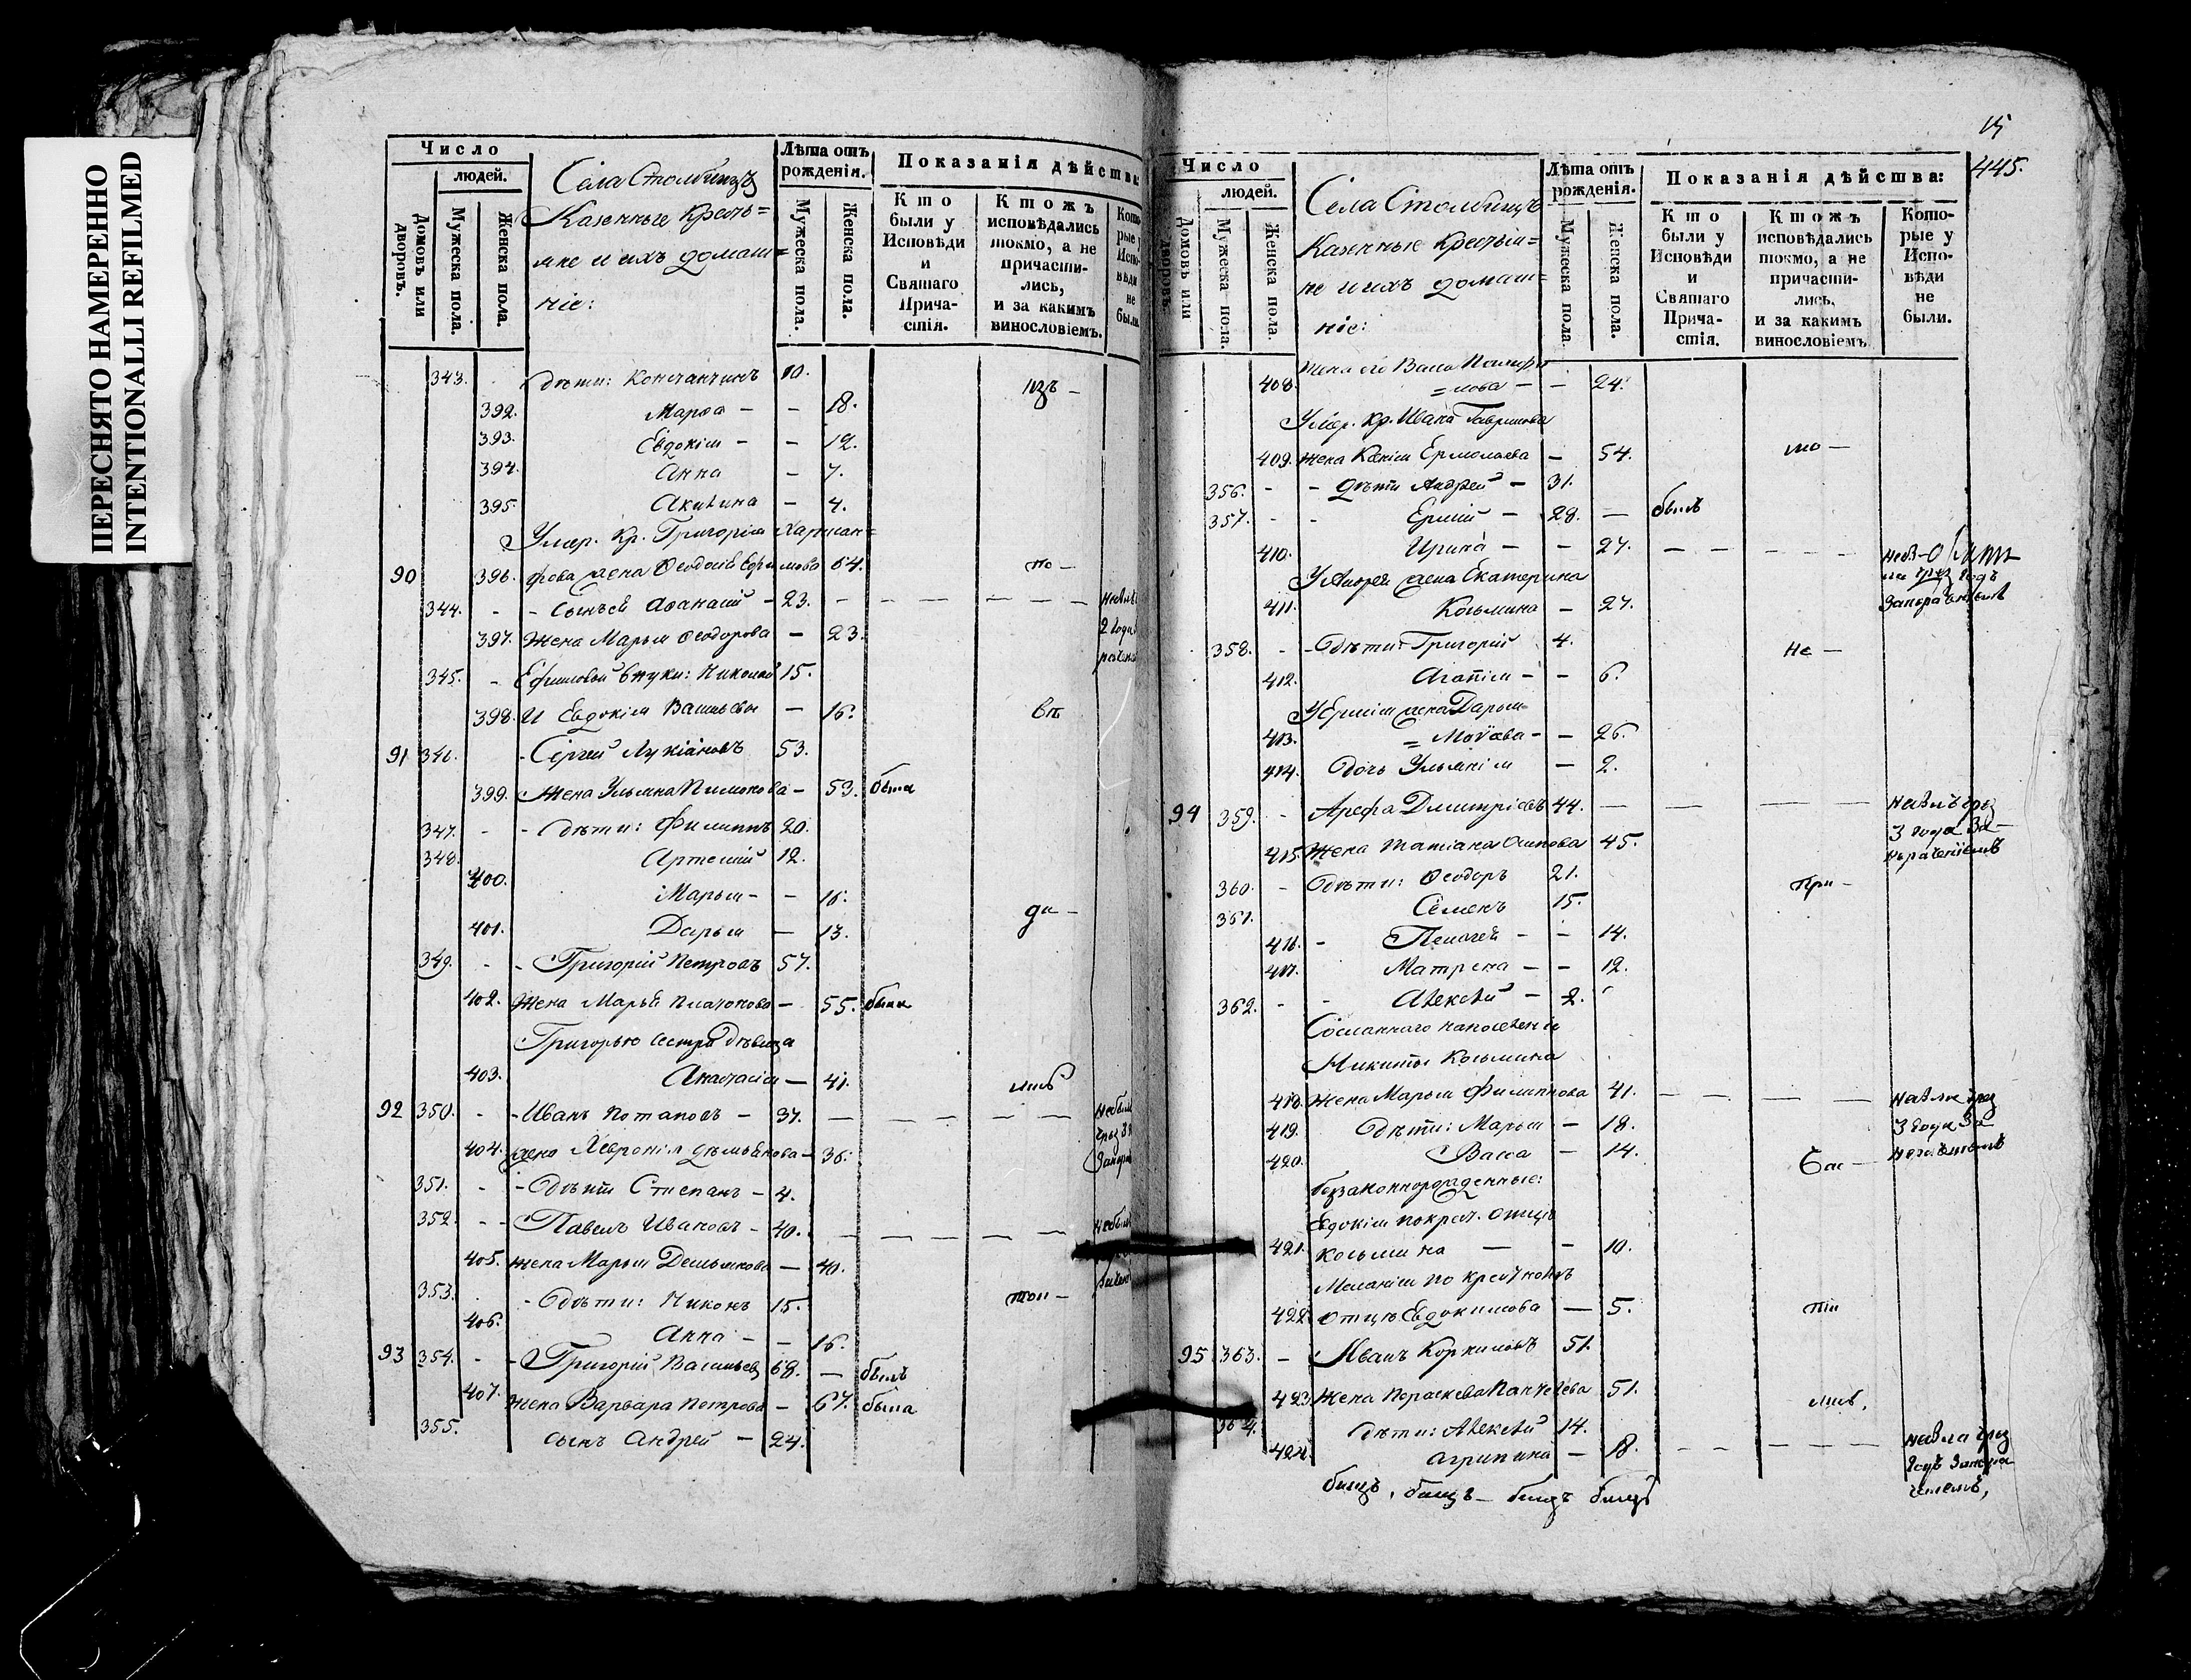 ПЕРЕСНЯТО НАМЕРЕННО
INTENTIONALLI REFILMED
Число
людей.
Домовъ или дворовъ.
Мужеска пола.
Женска пола.
Села Столбицъ
Казенные Кресть=
яне и ихъ домаш=
ніе:
Лѣта отъ рожденія.
Мужеска пола.
Женска пола.
Показанія дѣйства
Кто были у Исповѣди и Святаго Причастія.
Ктожъ исповѣдались токмо, а не причастились, и за какимъ винословіемъ.
343. дѣти: 10.
392. Марѳа – – 18.
393. Евдокія – – 12.
394. Анна – 7.
395. Акилина – 4.
Умер. Кр. Григорія
90 396. жена Ѳеодосія 64. по –
344. - - сынъ ей Аѳанасій – 23. – – – – – –
397. Жена Марья Ѳеодорова – 23.
345. - Ефимовой внуки: Николай 15.
398. И Евдокія – 16.
91 346. - Сергей Лукіановъ 53.
399. Жена Ульяна – 53. была
347. - - дѣти: Филиппъ 20.
348. Артемій 12.
400. Марья – – 16.
401. Дарья – 13. да –
349. - - Григорій Петровъ 57.
402. Жена Марья Платонова – 55. была
Григорью сестра дѣвица
403. Анастасія – 41.
92 350. - - Иванъ Потаповъ – 37. – – – – – –
404. жена Февронія – 36.
351. - - дѣти Степанъ – 4.
352. - - Павелъ Ивановъ – 40. – – – – –
405. Жена Марья Демьянова – 40.
353. - дѣти: Никонъ 15.
406. Анна – – 16.
93 354. - - Григорій Васильевъ 68. – былъ
407. Жена Варвара Петрова – 67. была
355. сынъ Андрей – 24.
15
445.
Число
людей.
Домовъ или дворовъ.
Мужеска пола.
Женска пола.
Села Столбицъ
Казенные Крестья=
не и ихъ домаш=
ніе:
Лѣта отъ рожденія.
Мужеска пола.
Женска пола.
Показанія дѣйства:
Кто были у Исповѣди и Святаго Причастія.
Ктожъ исповѣдались токмо, а не причастились, и за какимъ винословіемъ.
Которые у Исповѣди не были.
408. Жена его – – 24.
Умер. Кр. Ивана Гаврилова
409. Жена Ермолаева – 54.
356. - - дѣти Андрей – 31.
357. - - Ермій – 28. – былъ
410. Ирина – – 27. – – – – –
У Андрея жена Екатерина
411. Козьмина – 27.
358. - - дѣти: Григорій 4. Не –
412. Агапія – – 6.
У Ермія жена Дарья
413. – – 26.
414. дочь Ульянія – 2.
94 359. - Арефа Дмитріевъ 44. – – – –
3 года за-
415. Жена Татіана Осипова 45.
360. - дѣти: Ѳеодоръ 21. при –
361. Семенъ 15.
416. - Пелагея – – 14.
417. Матрена – – 12.
362. - - Алексѣй – 2.
Сосланнаго на поселеніе
Никиты Козьмина
418. Жена Марья Филиппова 41. – – – –
3 года за
419. дѣти: Марья – 18.
420. Васса – 14.
беззаконнорожденные:
Евдокія по крест. отцѣ
421. Козьмина – – 10.
Меланія по крестномъ
422. отцѣ Евдокимова – 5.
95 363. - Иванъ 51.
423. Жена 51.
364. дѣти: Алексѣй 14.
424. Агрипина – 18. – – – – –